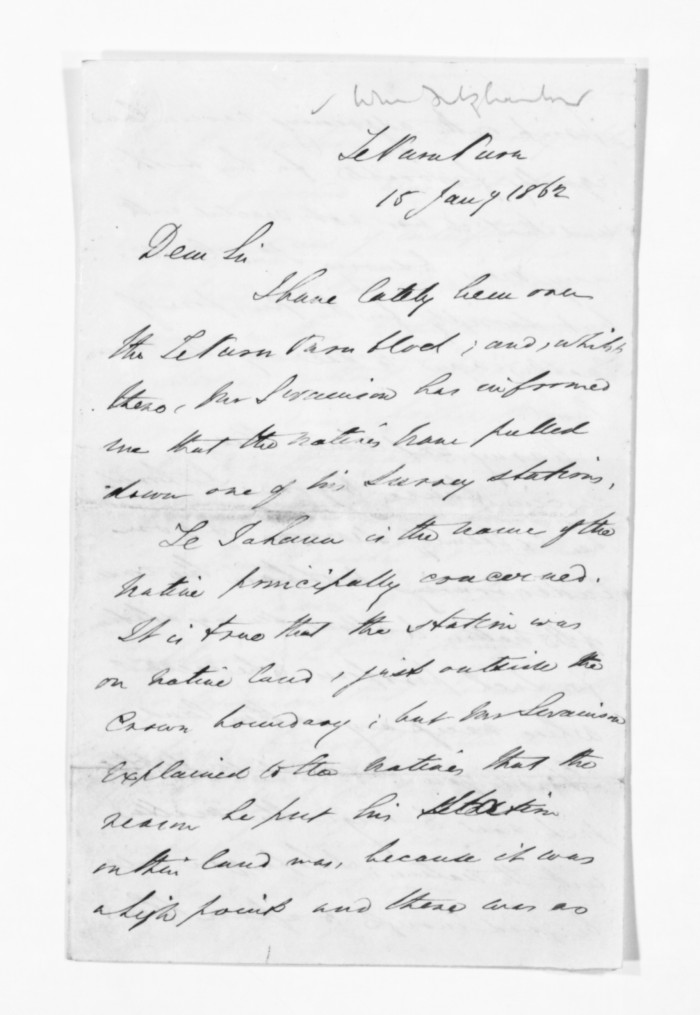 Wm Fitzherbert
15 Jany 1862
Dear Sir
I have lately been over
the block; and, whilst
there, Mr Swainson has informed
me that the natives have pulled
down one of his survey stations,
Te is the name of the
native principally concerned.
It is true that the station was
on native land, just outside the
Crown boundary; but Mr Swainson
explained to the natives that the
reason he put his station
on their land was, because it was
a high point and there was no